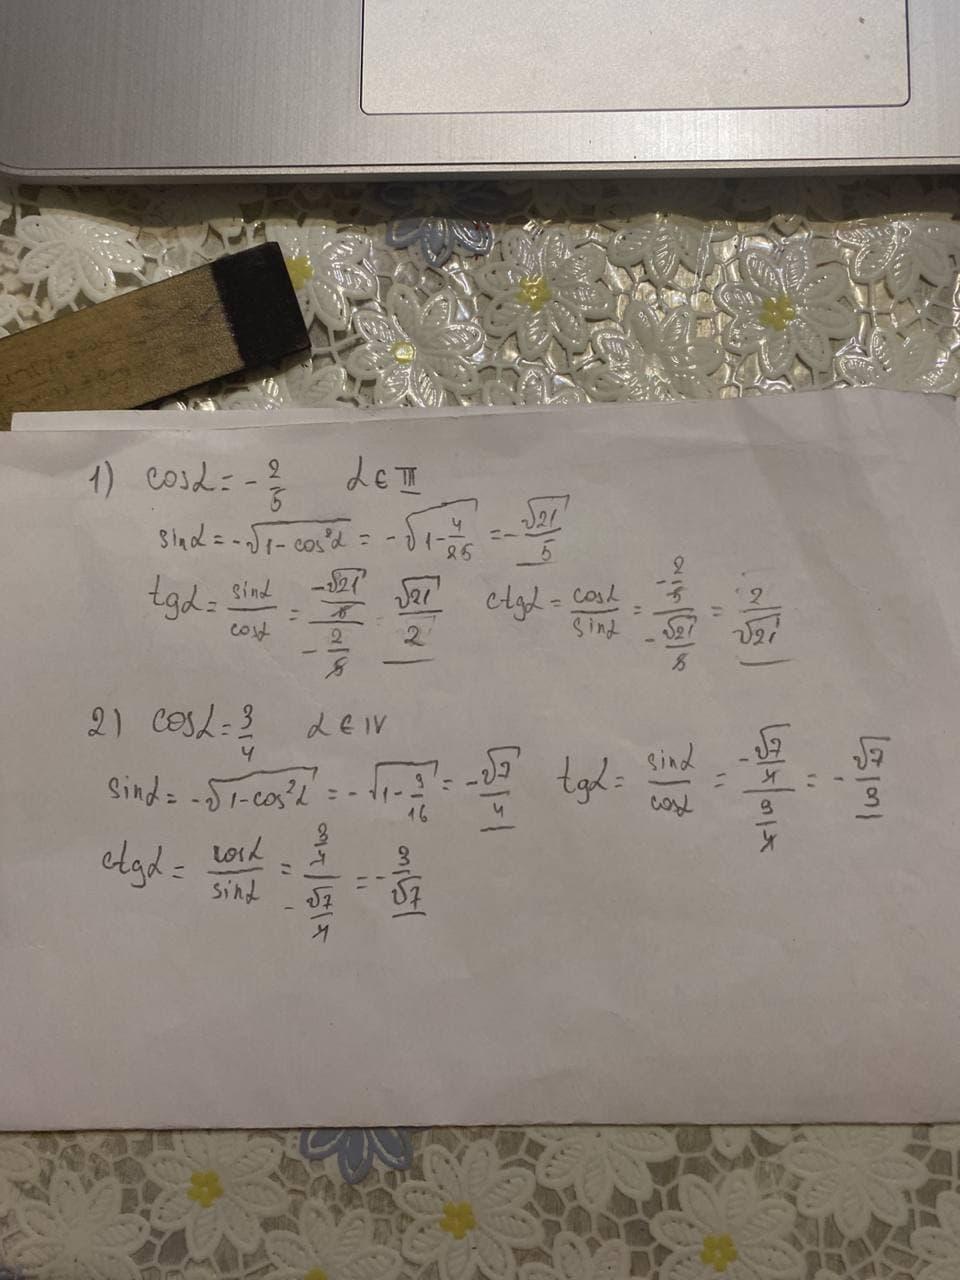 1) cosα = -2/5 α ∈ III
sinα = -√(1-cos²α) = -√(1-4/25) = -√21/5
tgα = sinα/cosα = (-√21/5)/(-2/5) = √21/2 ctgα = cosα/sinα = (-2/5)/(-√21/5) = 2/√21
2) cosα = 3/4 α ∈ IV
sinα = -√(1-cos²α) = -√(1-9/16) = -√7/4 tgα = sinα/cosα = (-√7/4)/(3/4) = -√7/3
ctgα = cosα/sinα = (3/4)/(-√7/4) = -3/√7